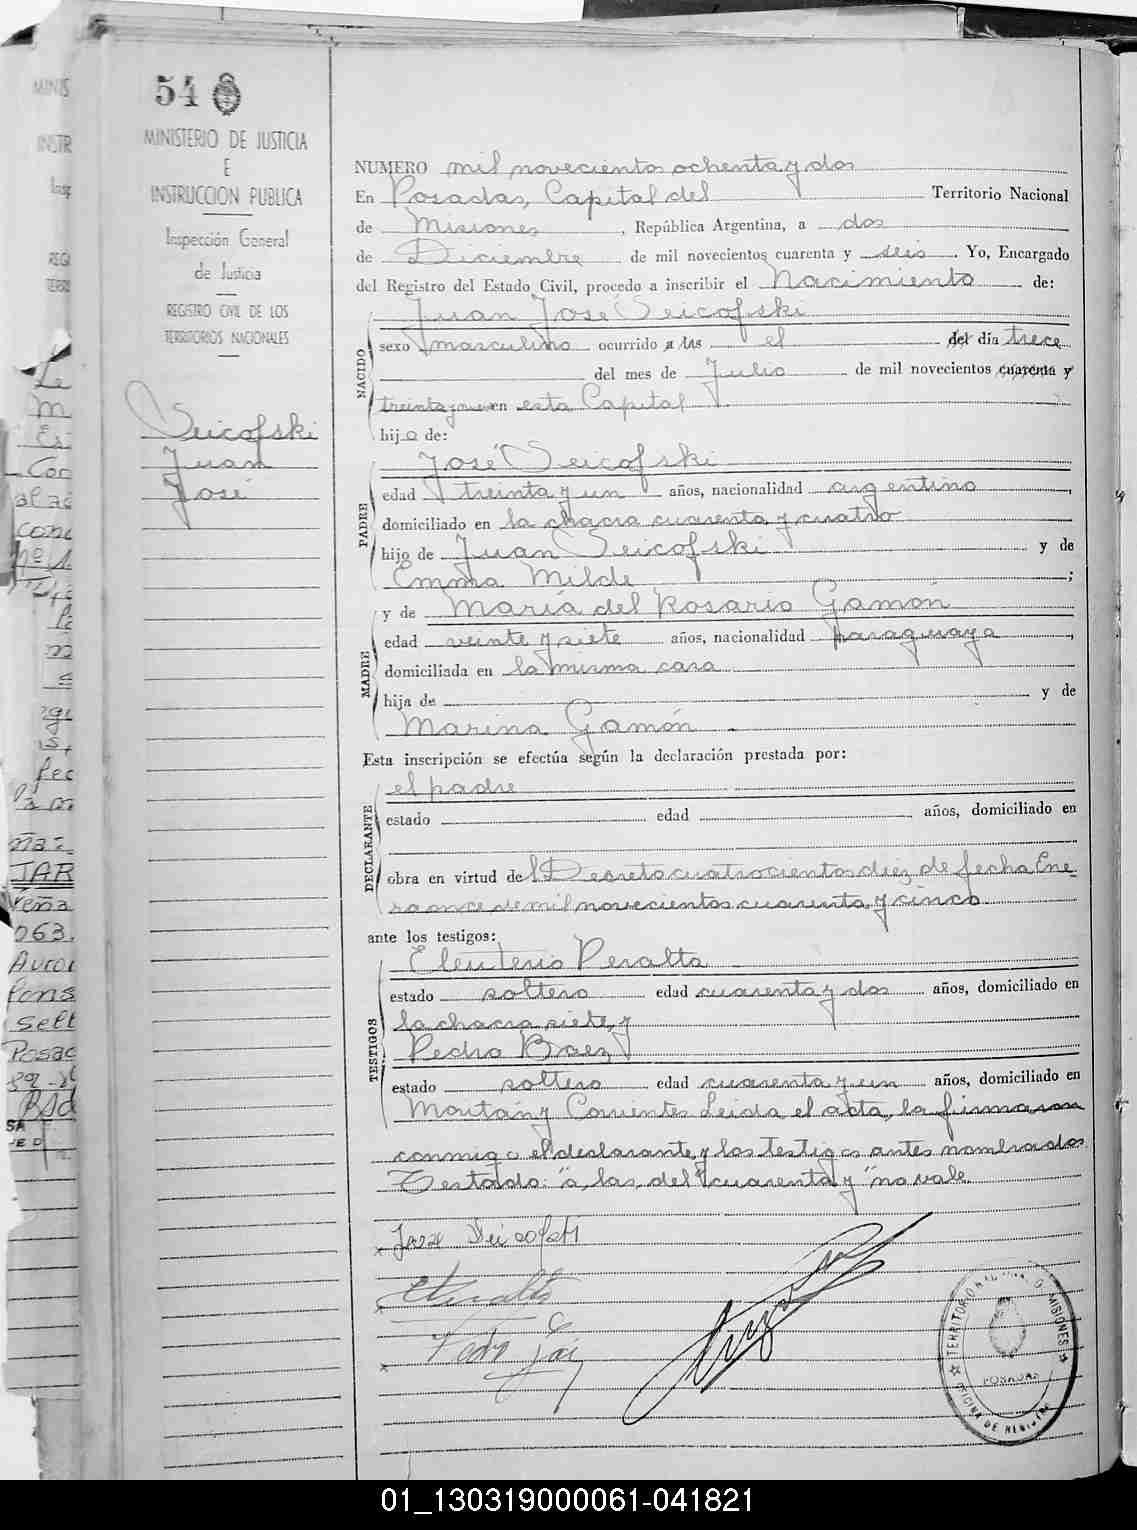 54
MINISTERIO DE JUSTICIA
E
INSTRUCCION PUBLICA
Inspección General
de Justicia
REGISTRO CIVIL DE LOS
TERRITORIOS NACIONALES
Seicofski
Juan
José
NUMERO mil novecientos ochenta y dos
En Posadas, Capital del Territorio Nacional
de Misiones, República Argentina, a dos
de Diciembre de mil novecientos cuarenta y seis. Yo, Encargado
del Registro del Estado Civil, procedo a inscribir el Nacimiento de:
Juan José Seicofski
NACIDO
sexo masculino ocurrido a las el del dia trece
del mes de Julio de mil novecientos cuarenta y
treinta y nueve en esta Capital
hijo de:
José Seicofski
PADRE
edad treinta y un años, nacionalidad argentino,
domiciliado en la chacra cuarenta y cuatro
hijo de Juan Seicofski y de
Emma Milde;
y de María del Rosario Gamón
MADRE
edad veinte y siete años, nacionalidad paraguaya,
domiciliada en la misma casa
hija de y de
Marina Gamón.
Esta inscripción se efectúa según la declaración prestada por:
el padre
DECLARANTE
estado edad años, domiciliado en
obra en virtud del Decreto cuatrocientos diez de fecha Ene-
ro once de mil novecientos cuarenta y cinco.
ante los testigos:
Eleuterio Peralta
TESTIGOS
estado soltero edad cuarenta y dos años, domiciliado en
la chacra siete, y
Pedro Baez
estado soltero edad cuarenta y un años, domiciliado en
Montán y Corrientes Leida el acta, la firmaron
conmigo el declarante y los testigos antes nombrados.
Testado: "a, las, del "cuarenta y" no vale.
Jose Seicofski
EPeralta
Pedro
TERRITORIO NACIONAL DE MISIONES
POSADAS
OFICINA DE REGISTRO
01_130319000061-041821